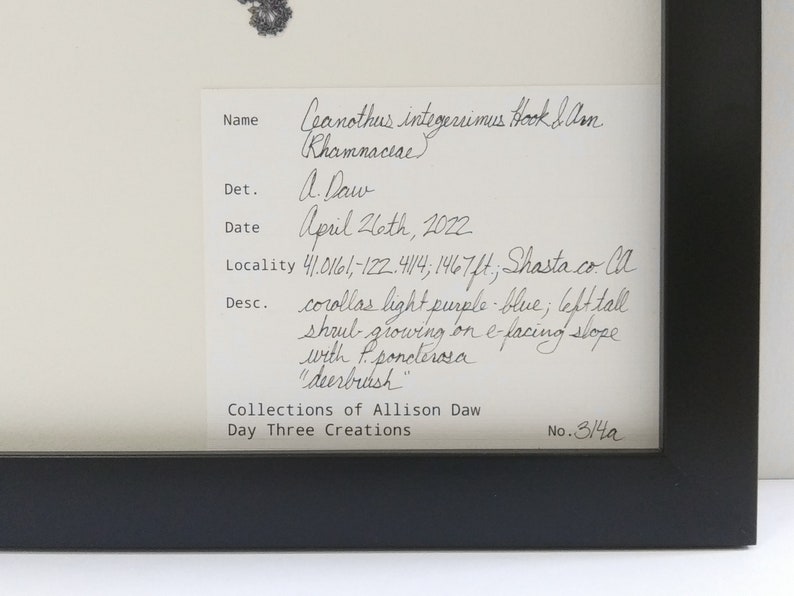 Name Ceanothus integerrimus Hook & Arn.
(Rhamnaceae)
Det. A. Daw
Date April 26th, 2022
Locality 41.0161,-122.4114; 1467 ft.; Shasta co. CA
Desc. corollas light purple-blue; 6ft tall
shrub growing on e-facing slope
with P. ponderosa
"deerbrush"
Collections of Allison Daw
Day Three Creations
No. 314a